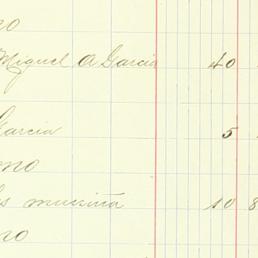 no
Miguel A Garcia 40
Garcia 5
no
muniña 10 8
no